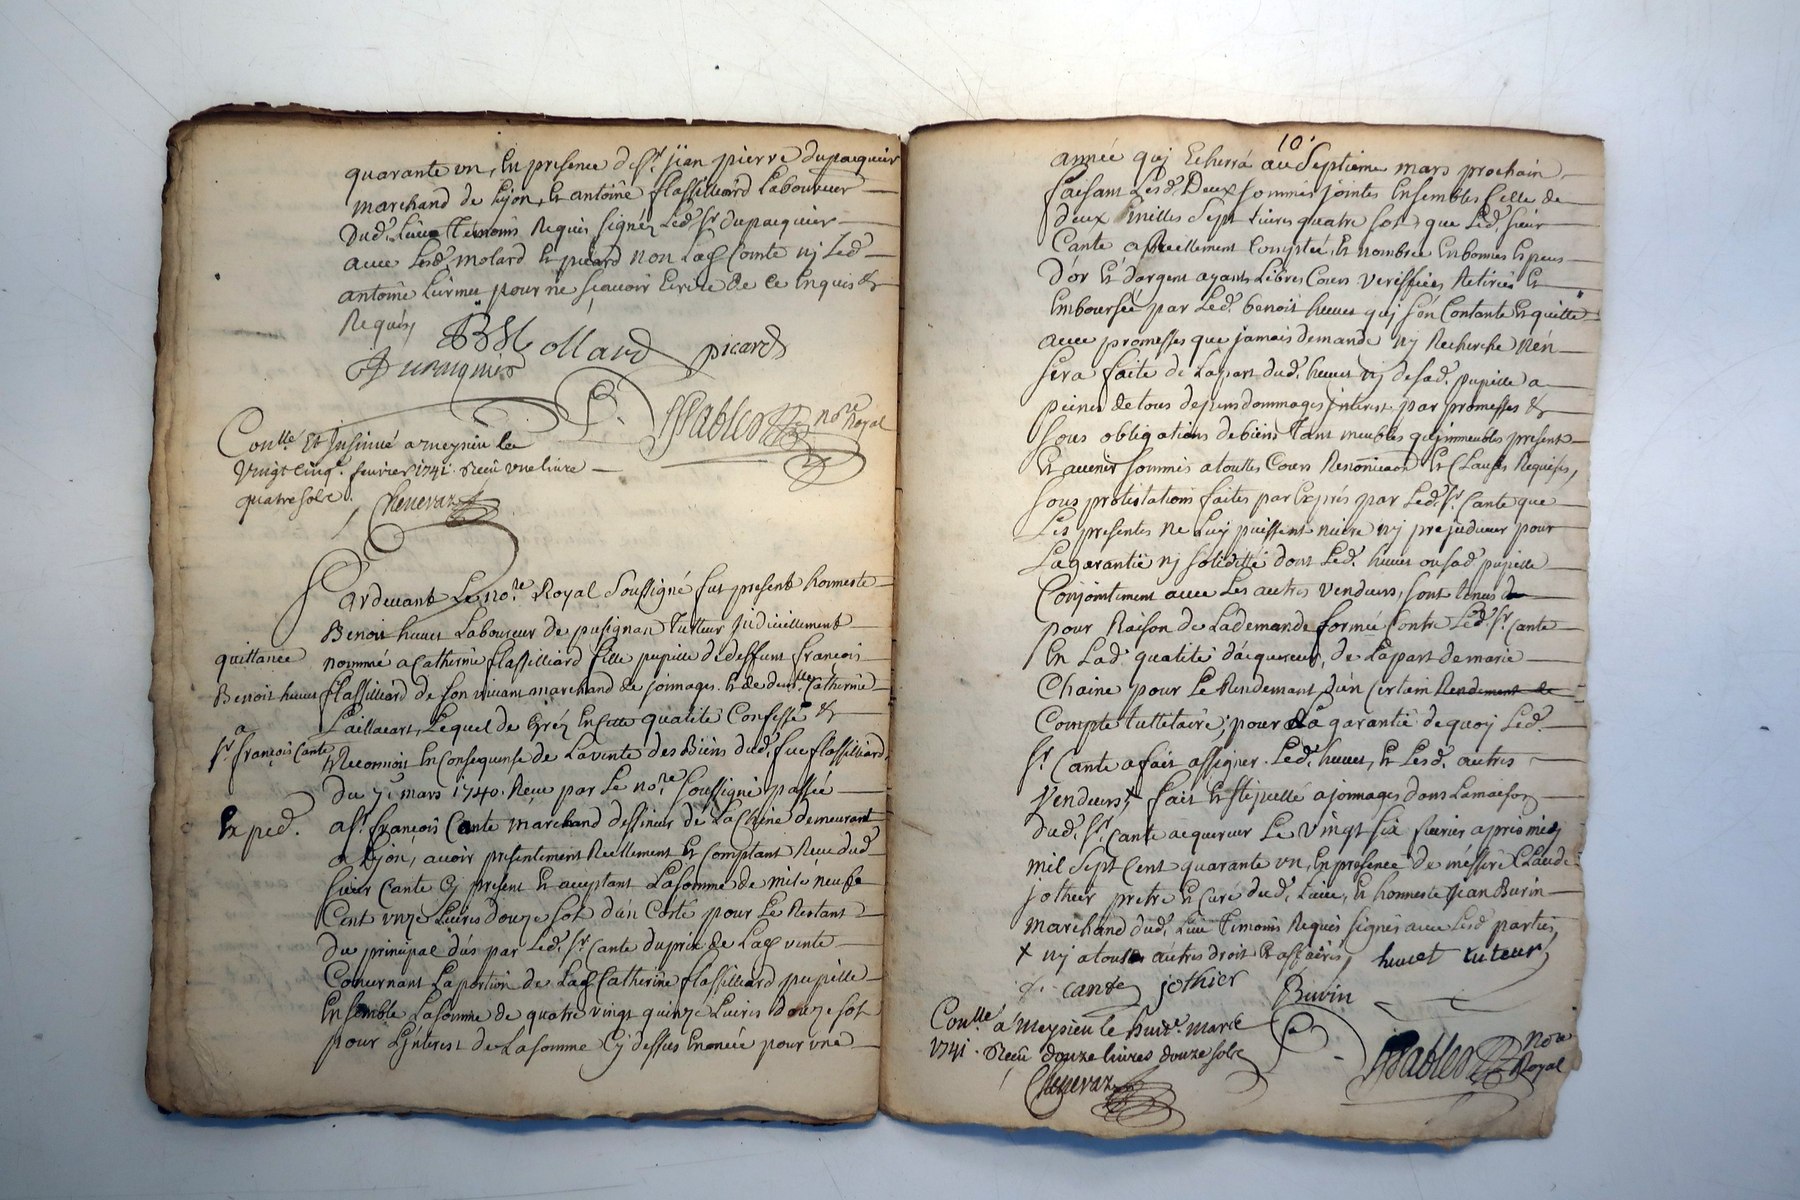 quarante un, En presence de Sr. jean pierre dupacquier
marchand de Lyon, Et antoine flassilliard Laboureur
dud. Lieu Temoins Requis signés Led. Sr. dupacquier
avec Lesd. molard Et picard non Lad. Comte nj Led.
antoine pour ne sçavoir Ecrire de ce Enquis &
Requis,
B Mollard picard
Dupaquier
P. Sablon nore Royal
Conllé Et Insinué a meysieu le
Vingt cinq. fevrier 1741. Reçu une livre
quatre sols.
Cheneraz
Pardevant Le nore. Royal soussigné fut present honneste
Benoit huuet Laboureur de pusignan Tutteur judiciellement
quittance
nommé a Catherine flassilliard fille pupille de deffunt françois
Benoit huuet
flassilliard de son vivant marchand de jonnages. Et de deufte Catherine
a
Lequel de Gréz En Cette qualité Confesse &
Sr. françois Cante
Reconnoit En Consequense de La vente des Biens dud. feu flassilliard,
du 7e. mars 1740. Reçue par Le nore. soussigné passée
Exped.
a Sr. françois Cante marchand dessineur de La Chine demeurant
a Lyon, avoir presentement Reellement Et Comptant Reçu dud.
sieur Cante Cy present Et aceptant La somme de mile neufe
Cent unze Livres douze sols d'un Coté pour Le Restant
du principal dus par Led. Sr. Cante du prix de Lad. vente
Concernant La portion de Lad. Catherine flassilliard pupille
Ensemble La somme de quatre vingt quinze Livres douze sols
pour L'jnterest de La somme Cy dessus Enoncée pour une
10.
année quj Echerra au Septieme mars prochain
faisant Lesd. Deux sommes jointes Ensembles Celle de
deux milles Sept Livres quatre sols, que Led. sieur
Cante a Reellement Comptée Et nombrée En bonnes Especes
D'or Et d'argent ayants Libres Cours veriffiées Retirées Et
Emboursée par Led. benoit huuet quj s'en Contante Et quitte
avec promesses que jamais demande nj Recherche n'en
sera faite de La part dud. huuet nj de sad. pupille a
peines de tous depens dommages jnterest par promesses &
sous obligations de biens Tant meubles qu'jmmeubles present
Et avenir soumis a touttes Cours Renonceant Et Clauses Requises,
sous protestations faites par Exprés par Led. Sr. Cante que
Les presentes ne Luy puissent nuire nj prejudicier pour
La garantie nj solidité dont Led. huuet ou sad. pupille
Conjointement avec Les autres vendeurs, sont tenus
pour Raison de La demande formée Contre Led. Sr. Cante
En Lad. qualité d'acquereur, de La part de marie
Chaine pour Le Rendement d'un Certain Rendement de
Compte tuttelaire, pour La garantie de quoy Led.
Sr. Cante a fait assigner Led. huuet, Et Lesd. autres
Vendeurs, x fait Et stipullé a jonnages dans La maison
dud. Sr. Cante acquereur Le vingt six fevrier apres midy
mil Sept Cent quarante un, En presence de méssire Claude
jothier pretre Et Curé dud. Lieu, Et honneste jean Burin
marchand dud. Lieu Temoins Requis signés avec Lesd. parties,
x nj a tous autres droit Et affaires, huuet tuteur
f. cante jothier Burin
Conllé a Meysieu le huite. mars
1741. Reçu douze livres douze sols
P. Sablon nore Royal
Cheneraz